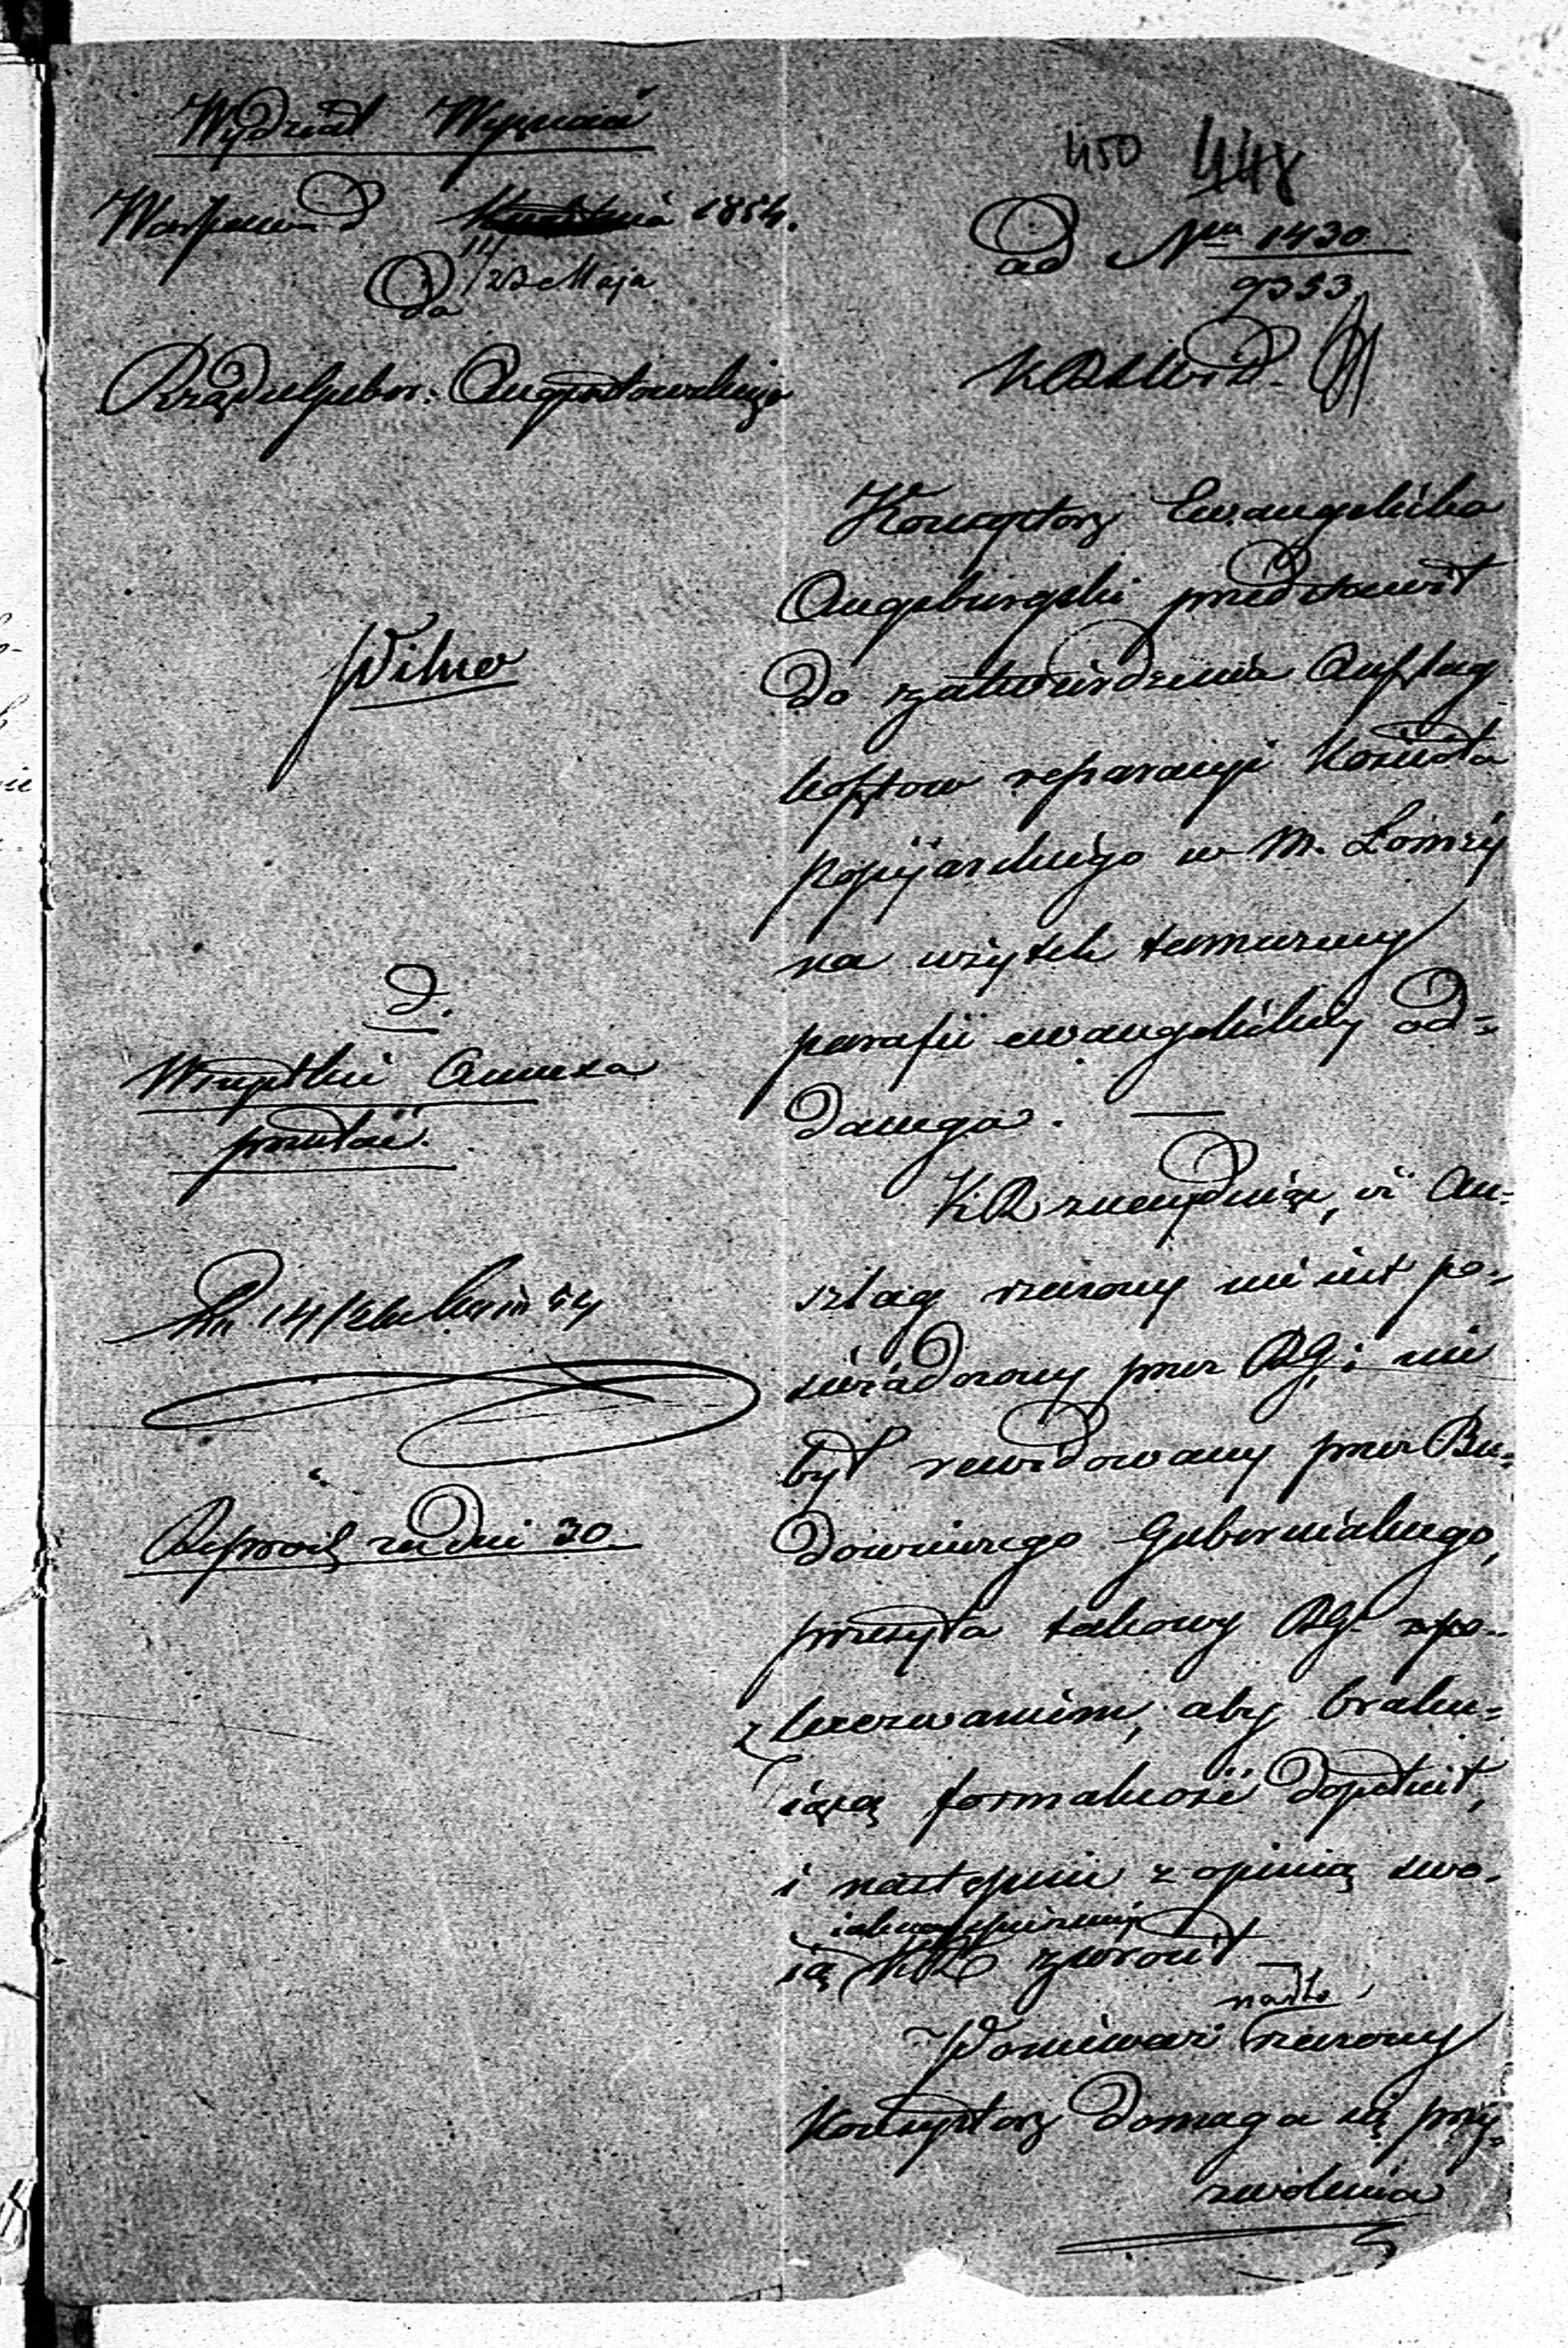 Wydział Wyznań
Warszawa d 1854.
11/23 Maja
Do
Rządu Guber: Augustowskiego
Pilno
D.
Wszystkie Annexa
przesłać
14/26
Reproij za dni 30.
450 448
ad Nra 1430
9353
Konsystorz Ewangelicko
Augsburgski przedstawił
do zatwierdzenia Anszlag
kosztów reparacyi Kościoła
popijarskiego w M. Łomży
na użytek tamecznej
parafii ewangelickiej od=
danego. —
KR zważywszy, iż An=
szlag rzeczony nie jest po=
świadczony przez RG. i nie
był rewidowany przez Bu=
downiczego Gubernialnego,
przesyła takowy RG. z po=
leceniem, aby braku=
iącą formalność dopełnił,
i następnie z opinią swo=
ią KR zwrócił
nadto
Ponieważ rzeczony
Konsystorz domaga się przy=
zwolenia